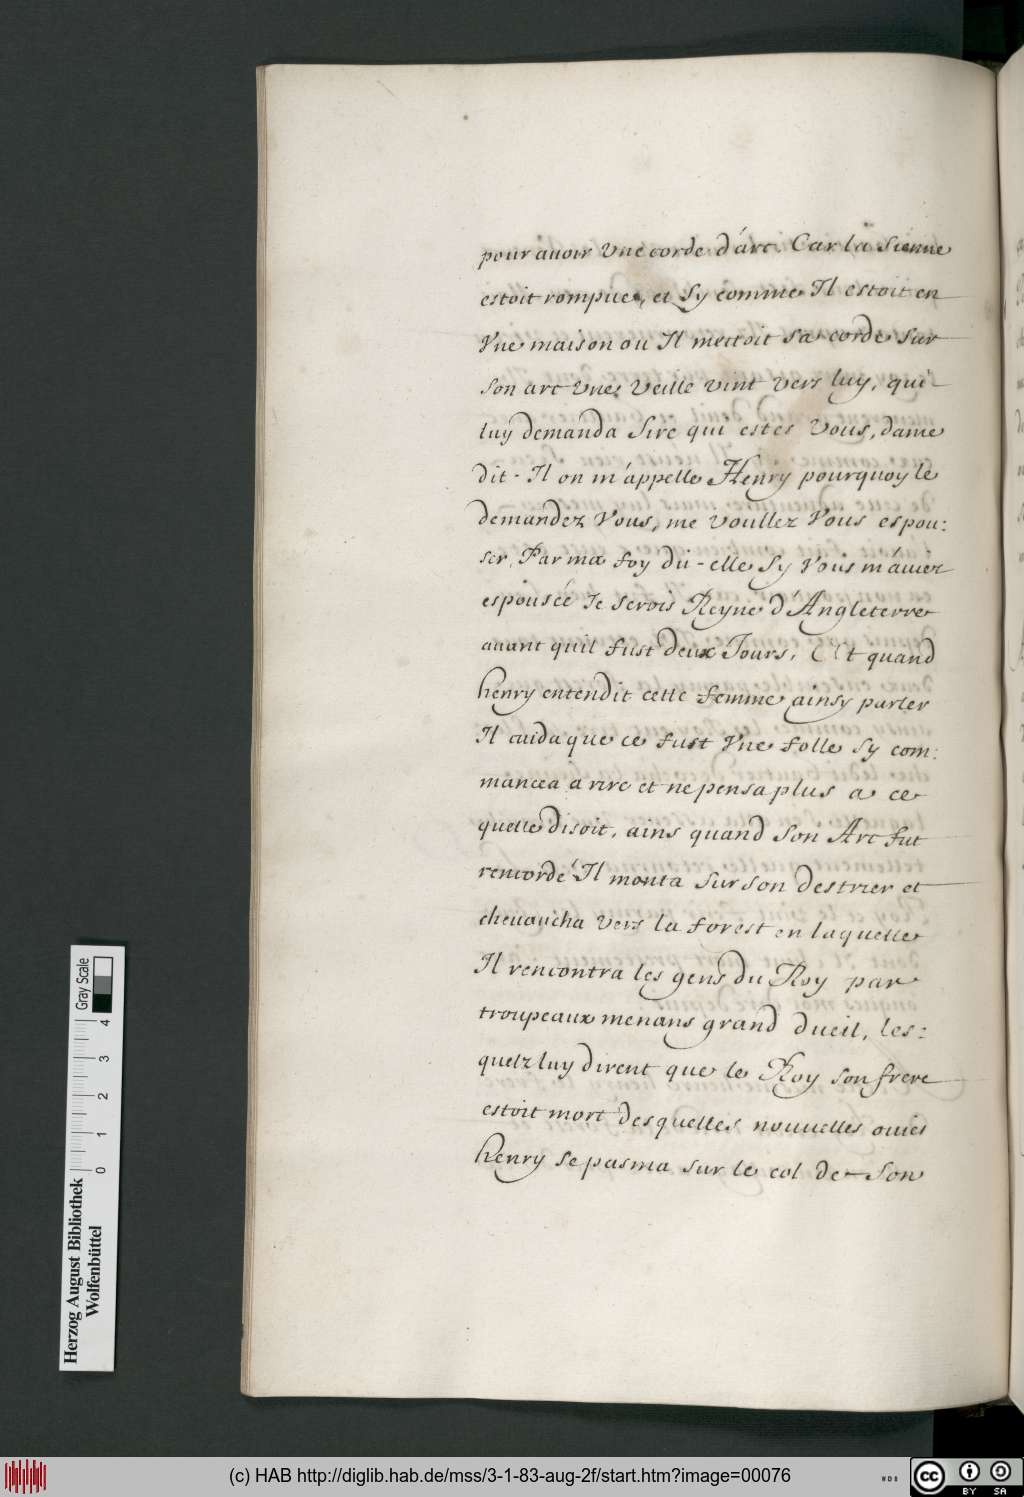 pour auoir vne corde d'arc. Car la Sienne
estoit rompue, et Sy comme Il estoit en
Vne maison ou Il mettoit sa corde Sur
son arc vne veille vint vers luy, qui
luy demanda Sire qui estes vous, dame
dit-Il on m'appelle Henry pourquoy le
demandez Vous, me voullez Vous espou:
ser, Par ma foy dit-elle Sy Vous m'auiez
espousée Je serois Reyne d'Angleterre
auant quil fust deux Jours, Et quand
henry entendit cette femme ainsy parler
Il cuida que ce fust Vne folle Sy com:
mancea a rire et ne pensa plus a ce
quelle disoit, ains quand Son Arc fut
rencordé Il monta sur son destrier et
cheuaucha vers la forest en laquelle
Il rencontra les gens du Roy par
troupeaux menans grand dueil, les:
quelz luy dirent que le Roy son frere
estoit mort desquelles nouuelles ouies
henry se pasma sur le col de Son
Gray Scale
0 1 2 3 4
Herzog August Bibliothek
Wolfenbüttel
(c) HAB http://diglib.hab.de/mss/3-1-83-aug-2f/start.htm?image=00076
WDB
cc BY SA